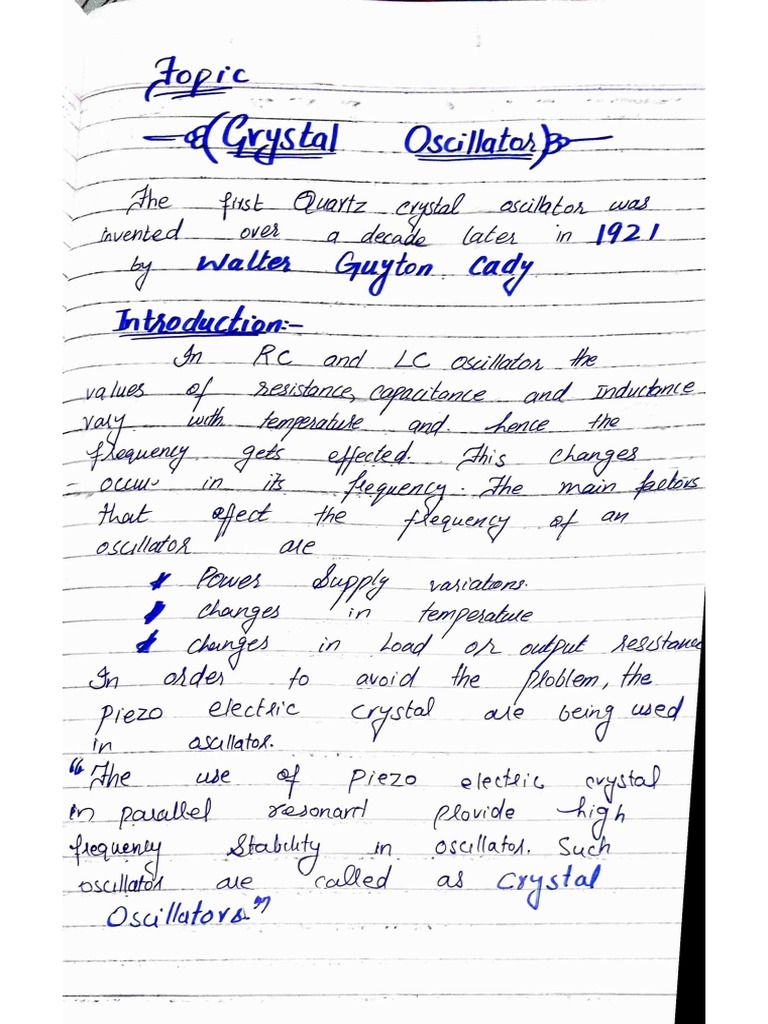 Topic
(Crystal Oscillator)
The first Quartz crystal oscillator was
invented over a decade later in 1921
by Walter Guyton Cady
Introduction:-
In RC and LC oscillator the
values of resistance, capacitance and Inductance
vary with temperature and hence the
frequency gets effected. This changes
occur in its frequency. The main factors
that effect the frequency of an
oscillator are
* Power Supply variations.
* changes in temperature
* changes in Load or output resistance
In order to avoid the problem, the
Piezo electric crystal are being used
in oscillator.
"The use of Piezo electric crystal
in parallel resonant provide high
frequency Stability in oscillator. Such
oscillator are called as Crystal
Oscillators."